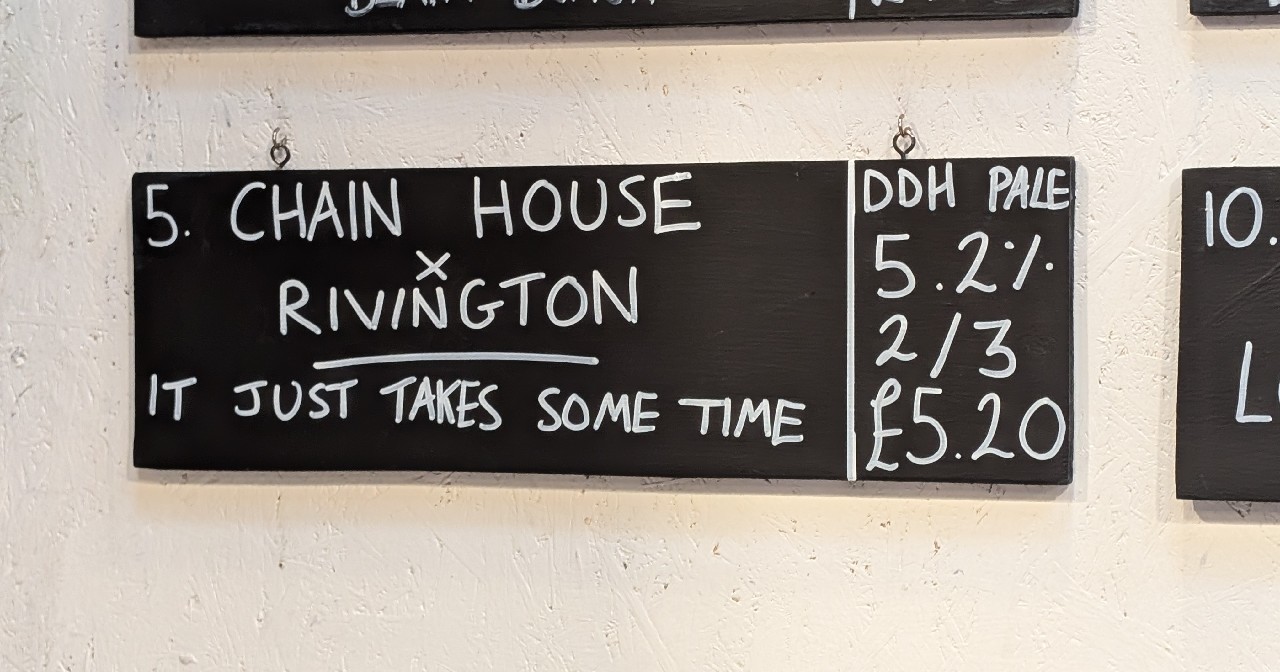 5. CHAIN HOUSE
×
RIVINGTON
IT JUST TAKES SOME TIME
DDH PALE
5.2%
2/3
£5.20
10.